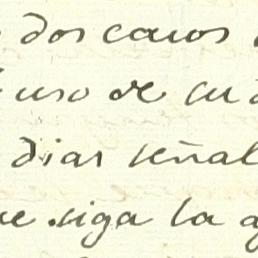 dos casos
uso de
dias señal
siga la